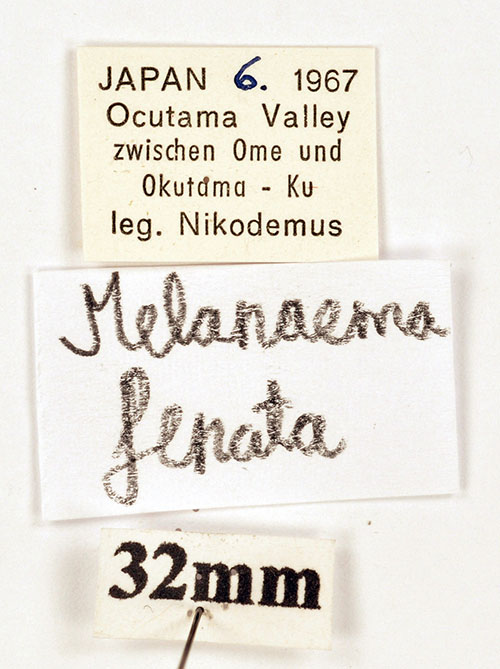 JAPAN 6. 1967
Ocutama Valley
zwischen Ome und
Okutama - Ku
leg. Nikodemus
Melanaema
fenata
32mm